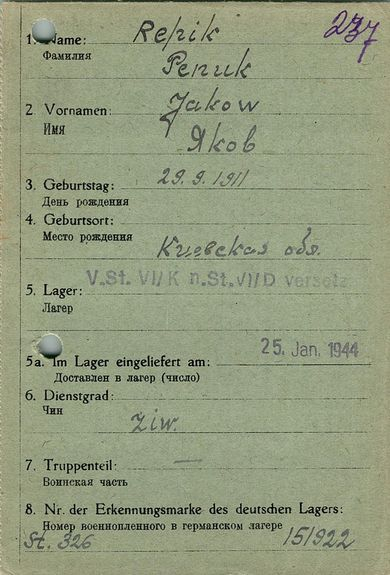 237
1. Name: Repik
Фамилия Репик
2 Vornamen: Jakow
Имя Яков
3. Geburtstag: 29. 9. 1911
День рождения
4. Geburtsort:
Место рождения
Киевская обл.
V. St. VI/K n. St. VI/D versetz
5. Lager:
Лагер
5a. Im Lager eingeliefert am: 25. Jan. 1944
Доставлен в лагер (число)
6. Dienstgrad:
Чин ziw.
7. Truppenteil: —
Воинская часть
8. Nr. der Erkennungsmarke des deutschen Lagers:
Номер военнопленного в германском лагере
St. 326 151922